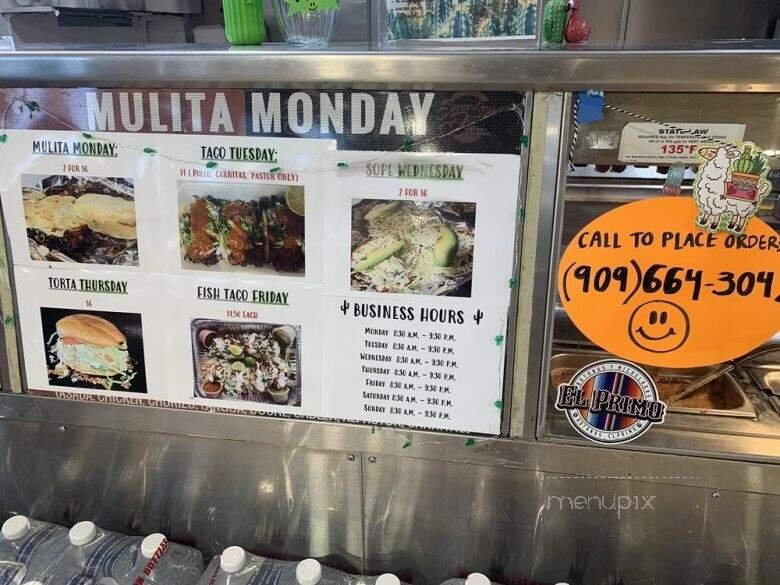 MULITA MONDAY
MULITA MONDAY:
2 FOR $6
TACO TUESDAY:
$1 (POLLO, CARNITAS, PASTOR ONLY)
SOPE WEDNESDAY
2 FOR $6
TORTA THURSDAY
$6
FISH TACO FRIDAY
$1.50 EACH
BUSINESS HOURS
MONDAY 8:30 A.M. – 9:30 P.M.
TUESDAY 8:30 A.M. – 9:30 P.M.
WEDNESDAY 8:30 A.M. – 9:30 P.M.
THURSDAY 8:30 A.M. – 9:30 P.M.
FRIDAY 8:30 A.M. – 9:30 P.M.
SATURDAY 8:30 A.M. – 9:30 P.M.
SUNDAY 8:30 A.M. – 9:30 P.M.
STATE LAW
135°F
CALL TO PLACE ORDER
(909)664-304
EL PRIMO
menupix